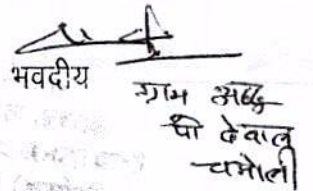 भवदीय
ग्राम
पो देवाल
चमोली